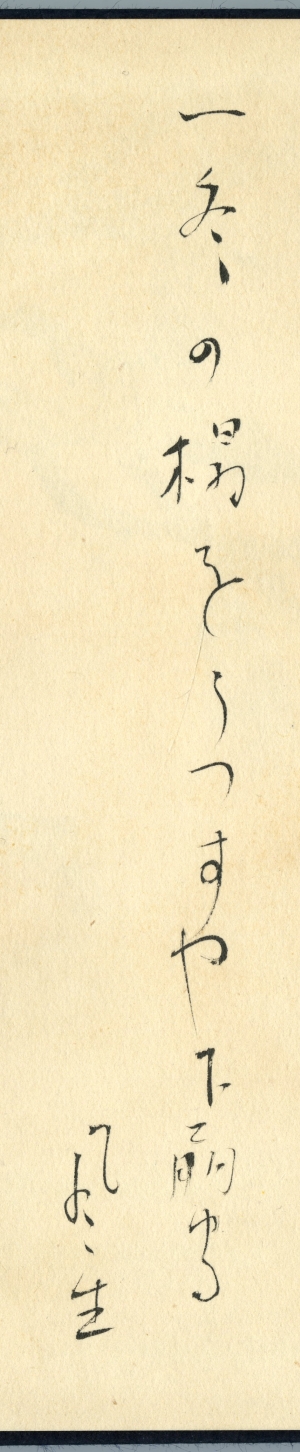 一冬の榻をうつすや下萌ゆる
風生